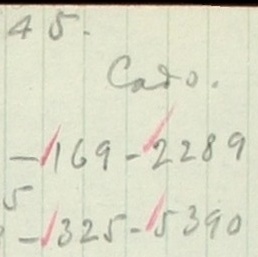 45.
Cado.
-169-2289
5
-325-5390